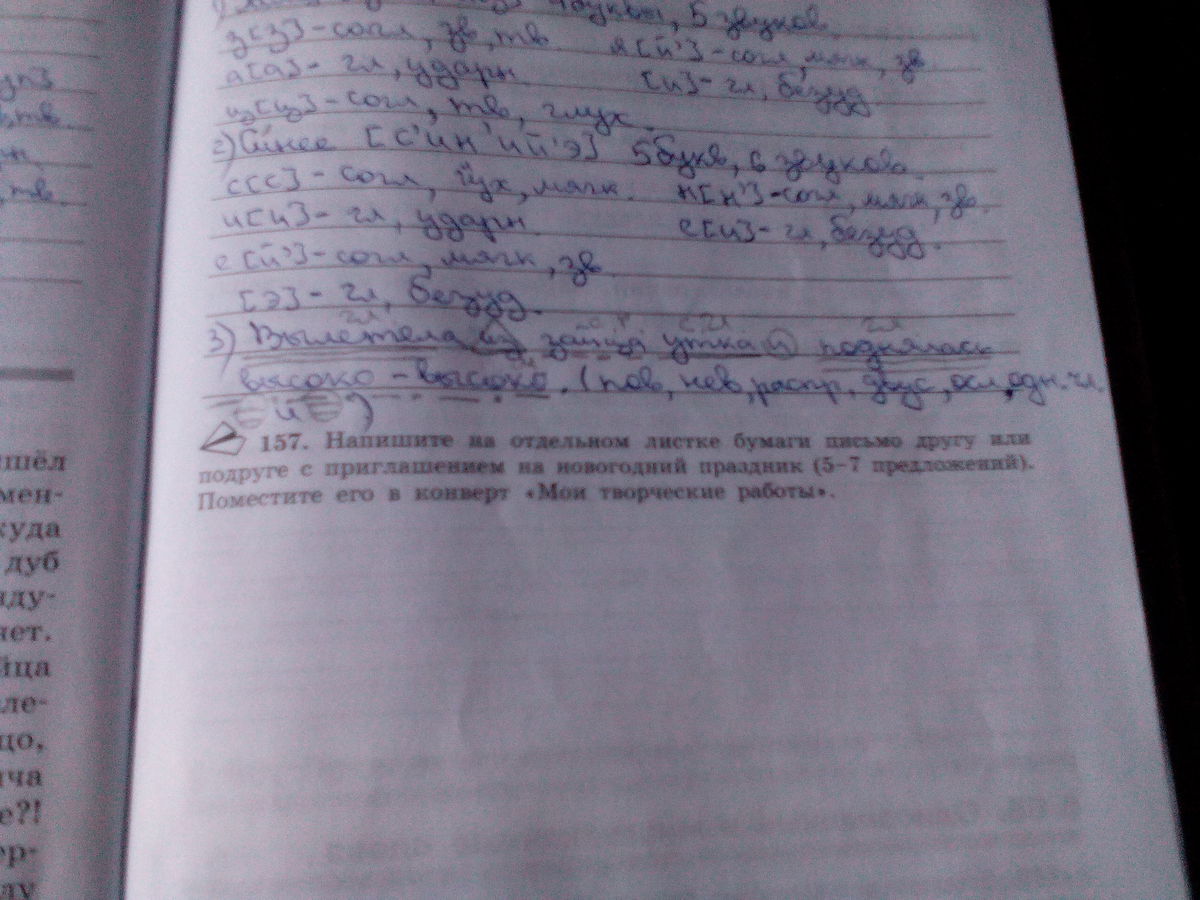 5 звуков
з[з]-согл, зв, тв. я[й']-согл, мягк, зв.
а[а]-гл, ударн. [и]-гл, безуд
ц[ц]-согл, тв, глух.
2) Синее [с'ин'ий'э] 5 букв, 6 звуков.
с[с]-согл, гух, мягк. н[н']-согл, мягк, зв.
и[и]-гл, ударн. е[и]-гл, безуд.
е[й']-согл, мягк, зв.
[э]-гл, безуд.
3) Вылетела из зайца утка и поднялась
высоко-высоко. (пов, нев, распр, двус, осл, одн. чл.
и )
157. Напишите на отдельном листке бумаги письмо другу или
подруге с приглашением на новогодний праздник (5–7 предложений).
Поместите его в конверт «Мои творческие работы».
шёл
мен-
куда
дуб
нду-
нет.
йца
ле-
цо,
ича
е?!
ер-